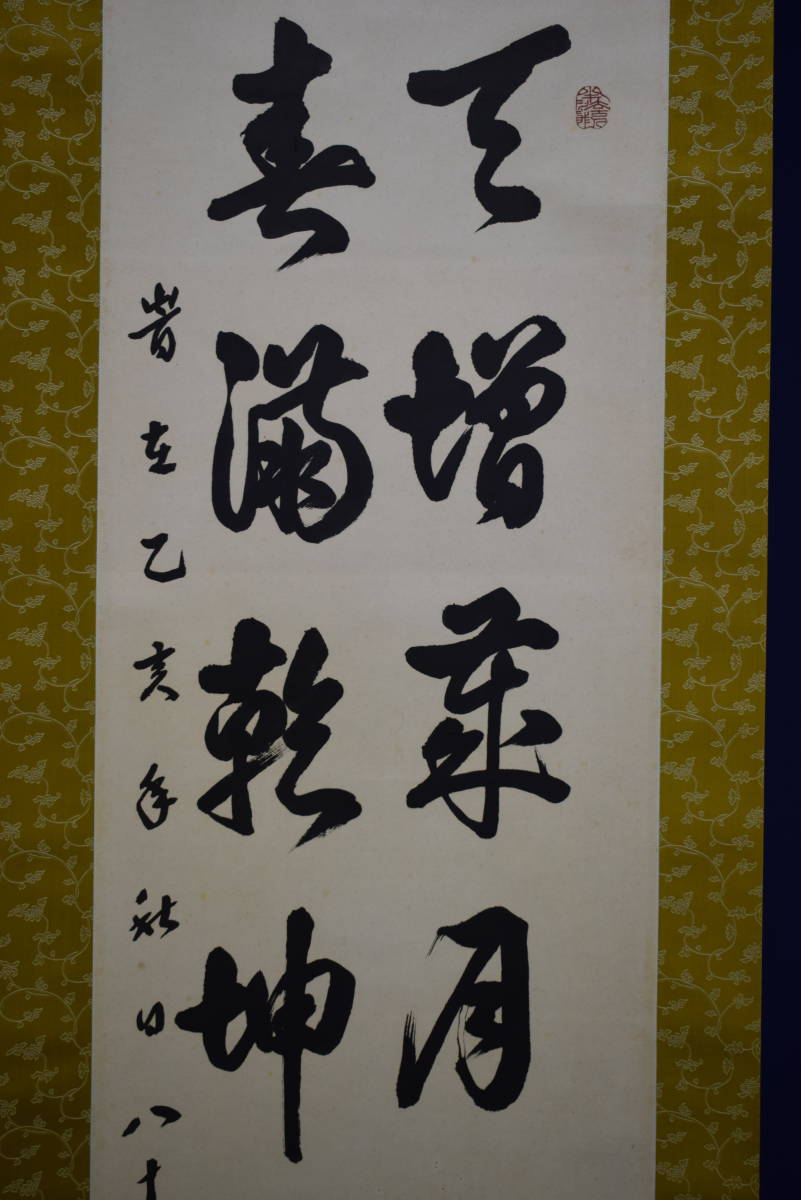 天增歲月
春滿乾坤
昔在乙亥年秋日八十